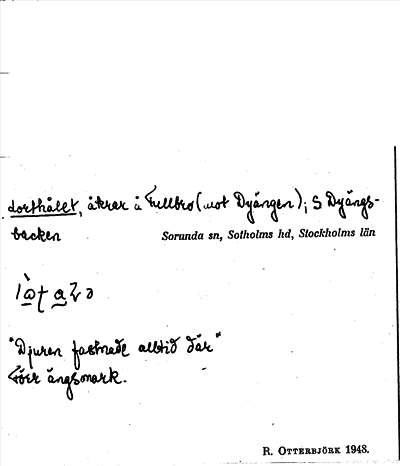 Lorthålet, åkrar å Fullbro (mot Dyängen); S Dyängs-
backen
Sorunda sn, Sotholms hd, Stockholms län
"Djuren fastnade alltid där"
Förr ängsmark.
R. OTTERBJÖRK 1948.